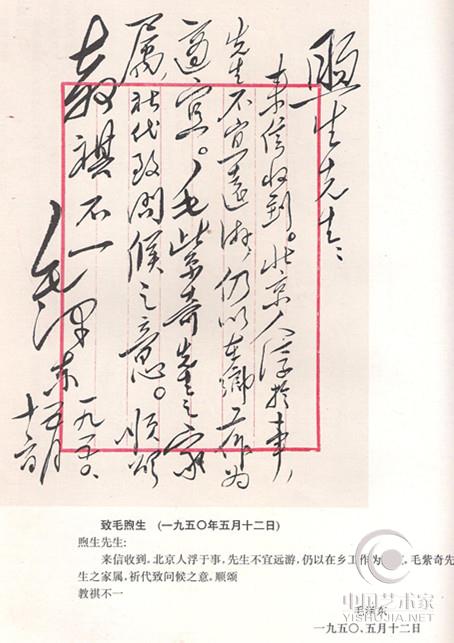 煦生先生：
来信收到。北京人浮於事，
先生不宜遠游，仍以在鄉工作为
適宜。毛紫奇先生之家
属，祈代致问候之意。顺颂
教祺不一
毛泽东
一九五〇、五月
十二日
致毛煦生 （一九五〇年五月十二日）
煦生先生：
来信收到。北京人浮于事，先生不宜远游，仍以在乡工作为 毛紫奇先
生之家属，祈代致问候之意。顺颂
教祺不一
毛泽东
一九五〇、五月十二日
中国艺术家
YISHUJIA.COM